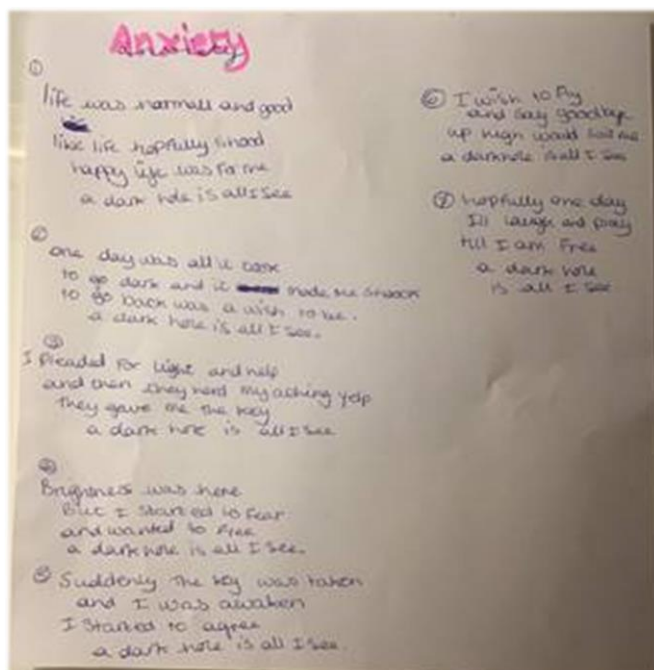 Anxiety
①
life was normall and good
like life hopfully shood
happy life was for me
a dark hole is all I see
②
one day was all it took
to go dark and it made me shoock
to go back was a wish to be.
a dark hole is all I see.
③
I Pleaded for light and help
and then they herd my aching yelp
They gave me the key
a dark hole is all I see
④
Brightness was here
But I started to fear
and wanted to flee
a dark hole is all I see.
⑤ Suddenly the key was taken
and I was awaken
I started to agree
a dark hole is all I see.
⑥ I wish to fly
and say goodbye
up high would be me
a dark hole is all I see
⑦ hopfully one day
Ill laugh and play
till I am free
a dark hole
is all I see